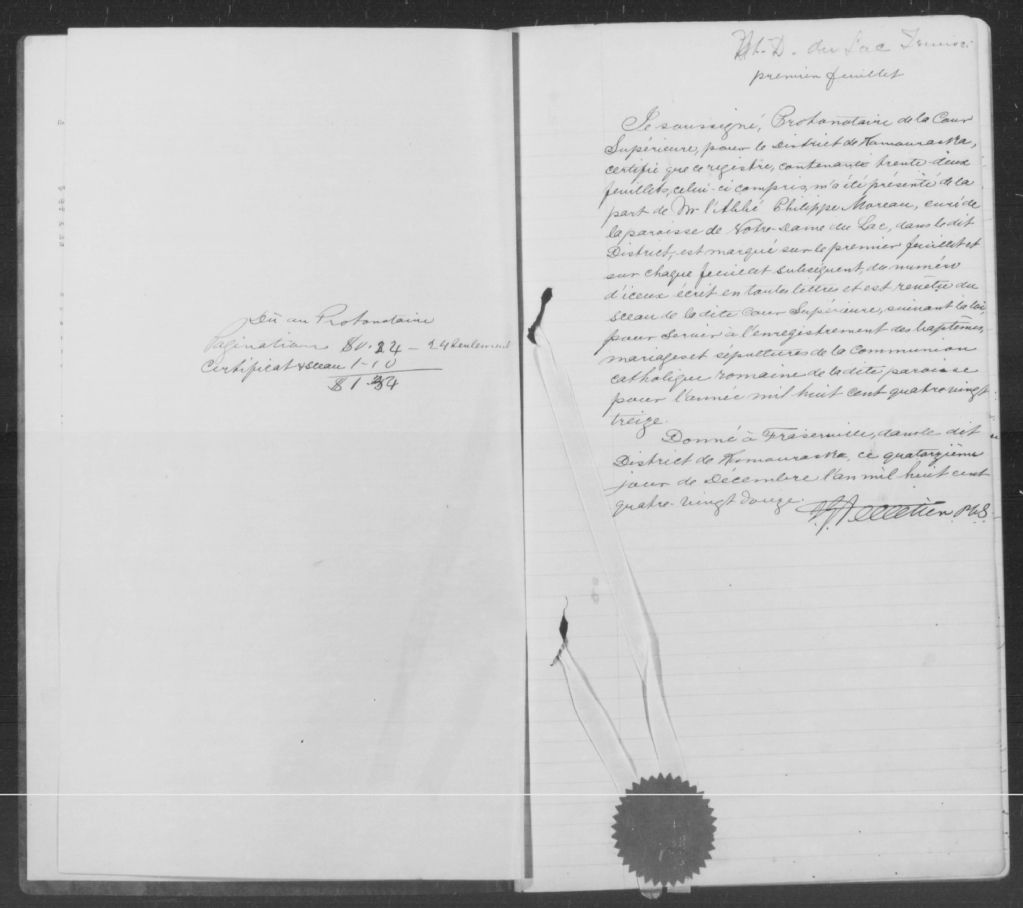 Dû au Protonotaire
Pagination $0.24 - 24 seulement
Certificat & sceau 1-10
$1.34
N.-D. du Lac
premier feuillet
Je soussigné, Protonotaire de la Cour
Supérieure, pour le District de Kamouraska,
certifie que ce registre, contenant trente-deux
feuillets, celui-ci compris, m'a été présenté de la
part de Mr l'Abbé Philippe Moreau, curé de
la paroisse de Notre-Dame du Lac, dans le dit
District, est marqué sur le premier feuillet et
sur chaque feuillet subséquent, du numéro
d'iceux écrit en toutes lettres et est revêtu du
sceau de la dite Cour Supérieure, suivant la loi,
pour servir à l'enregistrement des baptêmes,
mariages et sépultures de la Communion
catholique romaine de la dite paroisse
pour l'année mil huit cent quatre-vingt
treize.
Donné à Fraserville, dans le dit
District de Kamouraska, ce quatorzième
jour de Décembre l'an mil huit cent
quatre-vingt douze.
Pelletier P.C.S.